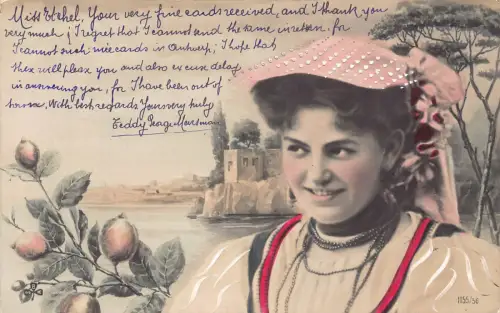 Miss Ethel, Your very fine cards received, and I thank you
very much; I regret that I cannot send the same in return, for
I cannot such nice cards in Antwerp; I hope that
they will please you, and also excuse delay
in answering you, for I have been out of
town. With best regards Yours very truly
Teddy George
1155/56